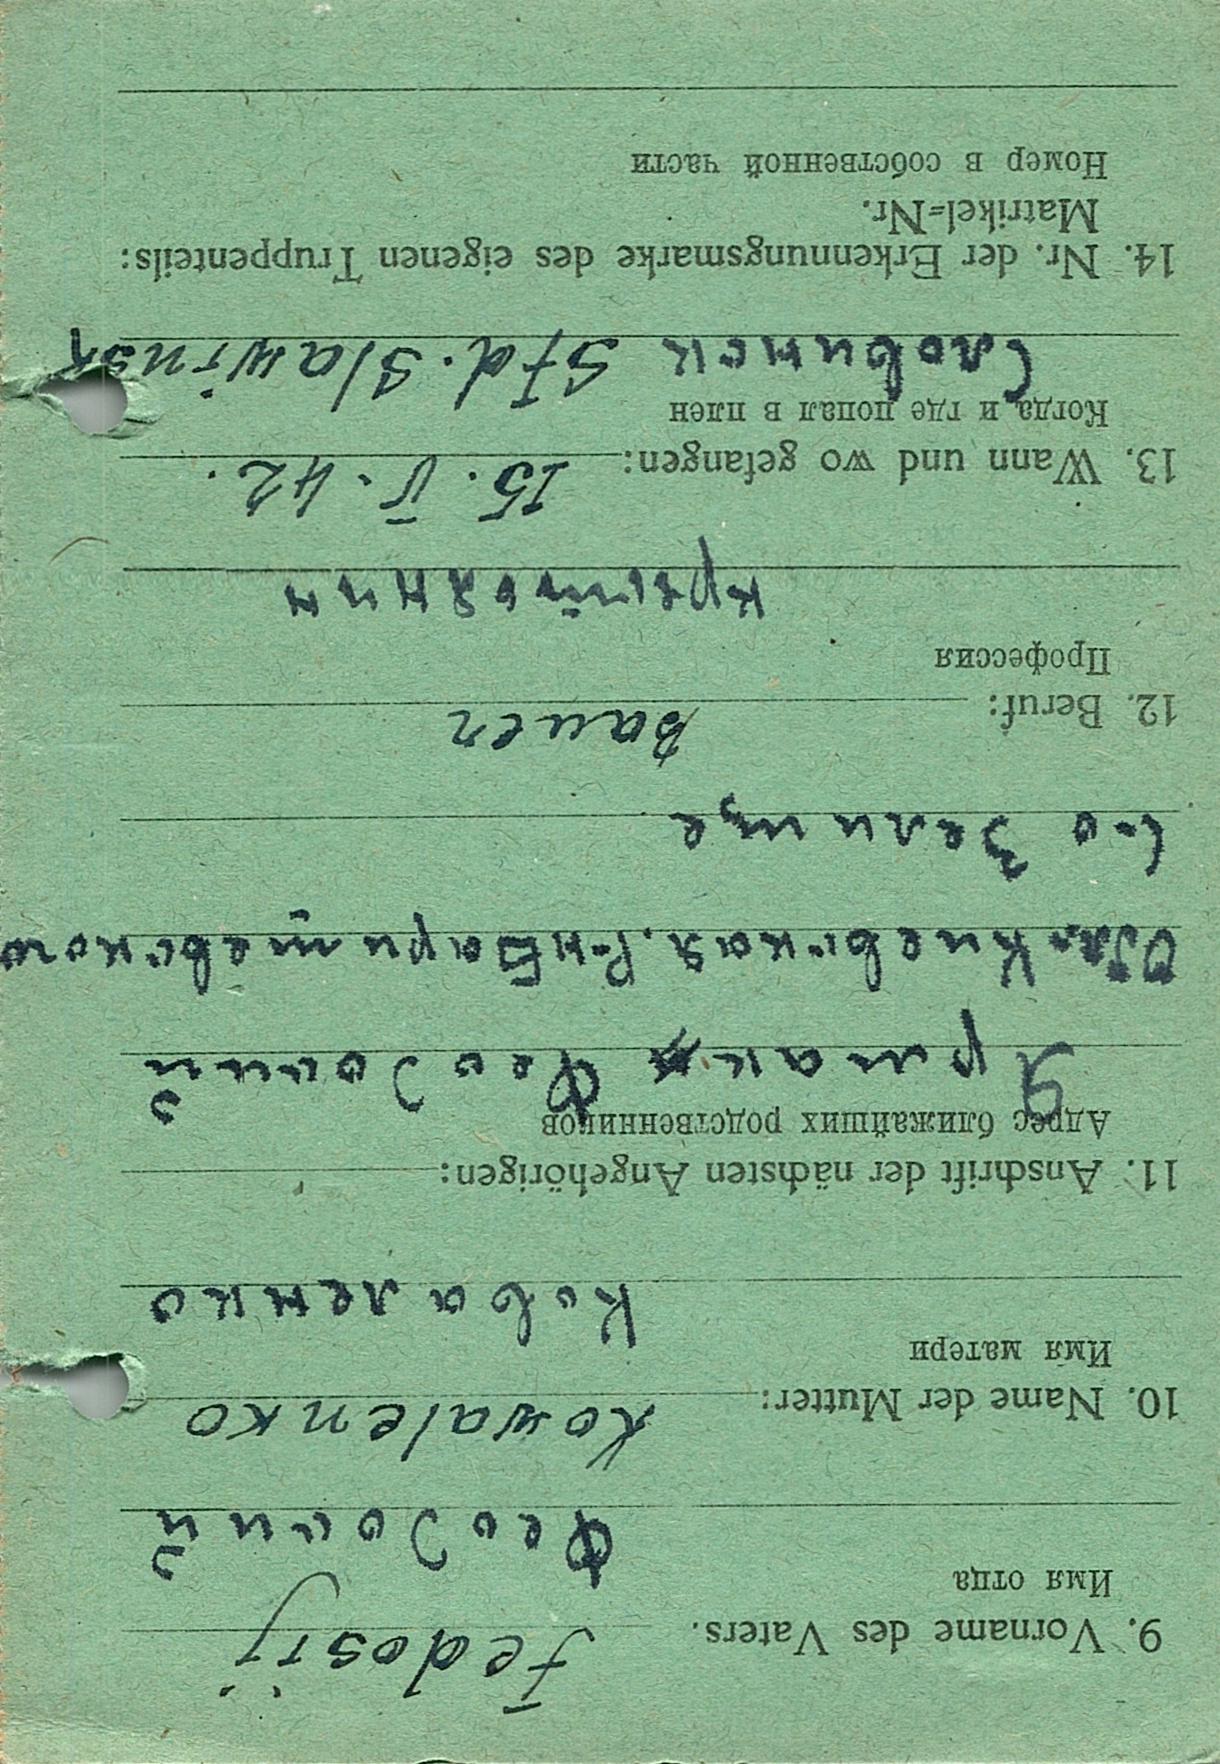 9. Vorname des Vaters. Fedosij
Имя отца
Феодосий
10. Name der Mutter: Kowalenko
Имя матери
Коваленко
11. Anschrift der nächsten Angehörigen:
Адрес ближайших родственников
Ярмак Феодосий
Обл. Киевская. Р-н Баришевского
С-о Селище
12. Beruf: Bauer
Профессия
крестьянин
13. Wann und wo gefangen: 15. V. 42.
Когда и где попал в плен
Славинск Std. Slawinsk
14. Nr. der Erkennungsmarke des eigenen Truppenteils:
Matrikel=Nr.
Номер в собственной части